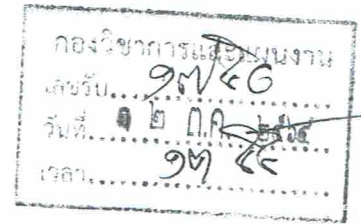 กองวิชาการและแผนงาน
เลขรับ ๑๗๔๐
วันที่ ๑ ๒ ต.ค. ๒๕๖๔
เวลา